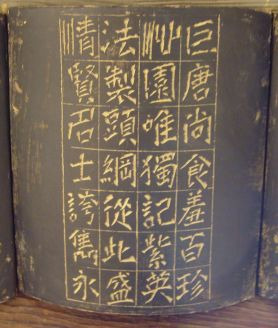 巨唐尚食羞百珍
艸園唯獨記紫英
法製頭綱從此盛
清賢君士誇雋永